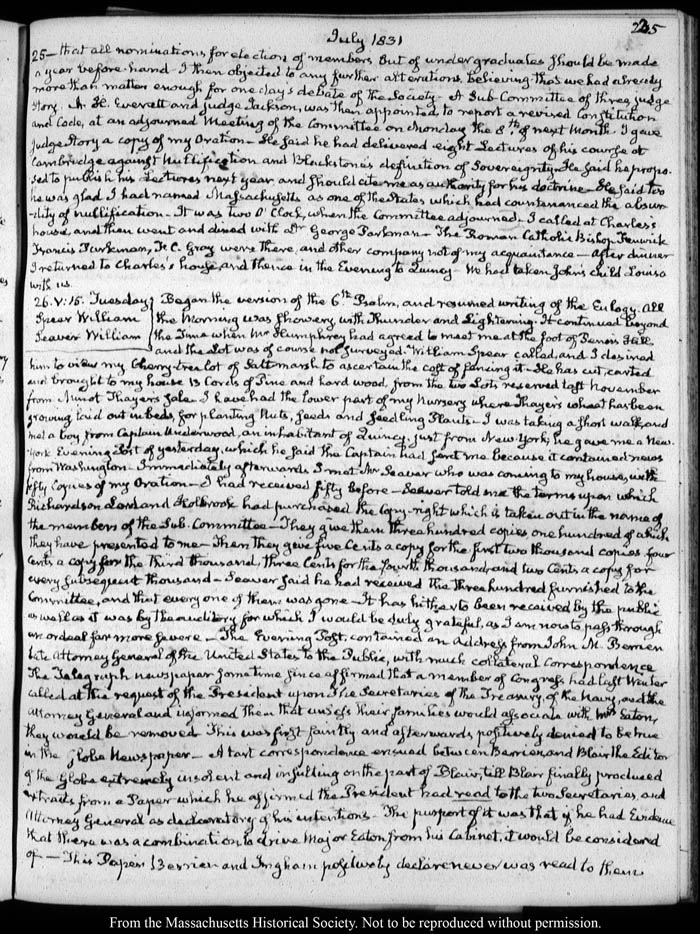 235
July 1831
25 — that all nominations for election of members but of undergraduates should be made
a year before-hand. I then objected to any further alterations, believing that we had already
more than matter enough for one day's debate of the Society — A Sub-Committee of three, Judge
Story, A. H. Everett and Judge Jackson, was then appointed to report a revised Constitution
and Code, at an adjourned Meeting of the Committee on Monday the 8th of next Month. I gave
Judge Story a copy of my Oration — He said he had delivered eight Lectures of his course at
Cambridge against Nullification and Blackstone's definition of Sovereignty. He said he propo-
sed to publish his Lectures next year and should cite me as authority for his doctrine — He said too
he was glad I had named Massachusetts as one of the States which had countenanced the absur-
-dity of nullification — It was two O'Clock, when the Committee adjourned. I called at Charles's
house, and then went and dined with Dr George Parkman — The Roman Catholic Bishop Fenwick
Francis Parkman, F. C. Gray were there, and other company not of my acquaintance — After dinner
I returned to Charles's house, and thence in the Evening to Quincy. We had taken John's child Louisa
with us.
26. V:15. Tuesday Began the version of the 6th Psalm, and resumed writing of the Eulogy. All
Spear William the Morning was showery, with Thunder and Lightening. It continued beyond
Seaver William the time when Mr Humphrey had agreed to meet me at the foot of Penn's Hill
and the Lot was of course not surveyed. William Spear called, and I desired
him to view my Cherry-tree lot of Salt marsh to ascertain the cost of fencing it — He has cut, carted
and brought to my house 13 Cords of Pine and hard wood, from the two Lots reserved last November
from Minot Thayer's sale. I have had the lower part of my Nursery where Thayer's wheat has been
growing laid out in beds, for planting Nuts, seeds and seedling Plants — I was taking a short walk and
met a boy from Captain Underwood, an inhabitant of Quincy just from New-York; he gave me a New-
York Evening Post of yesterday, which he said the Captain had sent me because it contained news
from Washington — Immediately afterwards I met Mr Seaver who was coming to my house, with
fifty Copies of my Oration — I had received fifty before — Seaver told me the terms upon which
Richardson Lord and Holbrook had purchased the Copy-right which is taken out in the name of
the members of the Sub-Committee — They give them three hundred copies, one hundred of which
they have presented to me — Then they give five Cents a copy for the first two thousand copies, four
Cents a copy for the third thousand, three Cents for the fourth thousand and two Cents a copy for
every subsequent thousand — Seaver said he had received the three hundred furnished to the
Committee, and that every one of them was gone — It has hitherto been received by the public
as well as it was by the auditory for which I would be duly grateful, as I am now to pass through
an ordeal far more severe — The Evening Post, contained an Address from John M. Berrien
late Attorney General of the United States to the Public, with much collateral Correspondence
The Telegraph newspaper some time since affirmed that a member of Congress had last Winter
called at the request of the President upon the Secretaries of the Treasury, of the Navy, and the
Attorney General and informed them that unless their families would associate with Mrs Eaton,
they would be removed. This was first faintly and afterwards positively denied to be true
in the Globe Newspaper — A tart correspondence ensued between Berrien and Blair the Editor
of the Globe extremely insolent and insulting on the part of Blair, till Blair finally produced
extracts from a Paper which he affirmed the President had read to the two Secretaries, and
Attorney General as declaratory of his intentions. The purport of it was that if he had Evidence
that there was a combination to drive Major Eaton from his Cabinet, it would be considered
of — This Paper Berrien and Ingham positively declare never was read to them
From the Massachusetts Historical Society. Not to be reproduced without permission.